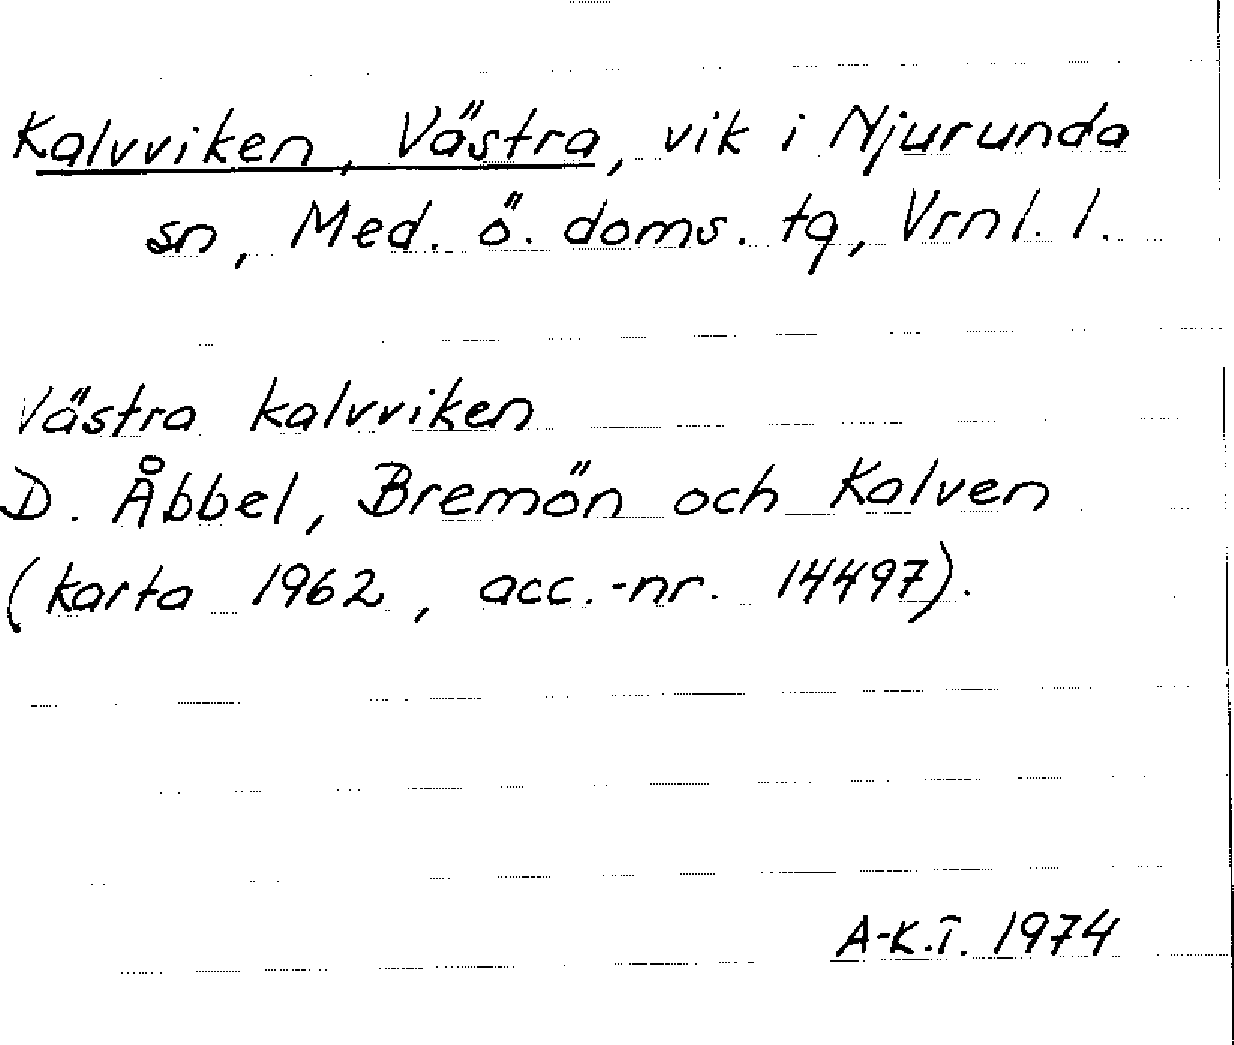 Kalvviken, Västra, vik i Njurunda
sn, Med. ö. doms. tg, Vrnl. l.
Västra kalvviken
D. Åbbel, Bremön och Kalven
(karta 1962, acc.-nr. 14497).
A-K.T. 1974